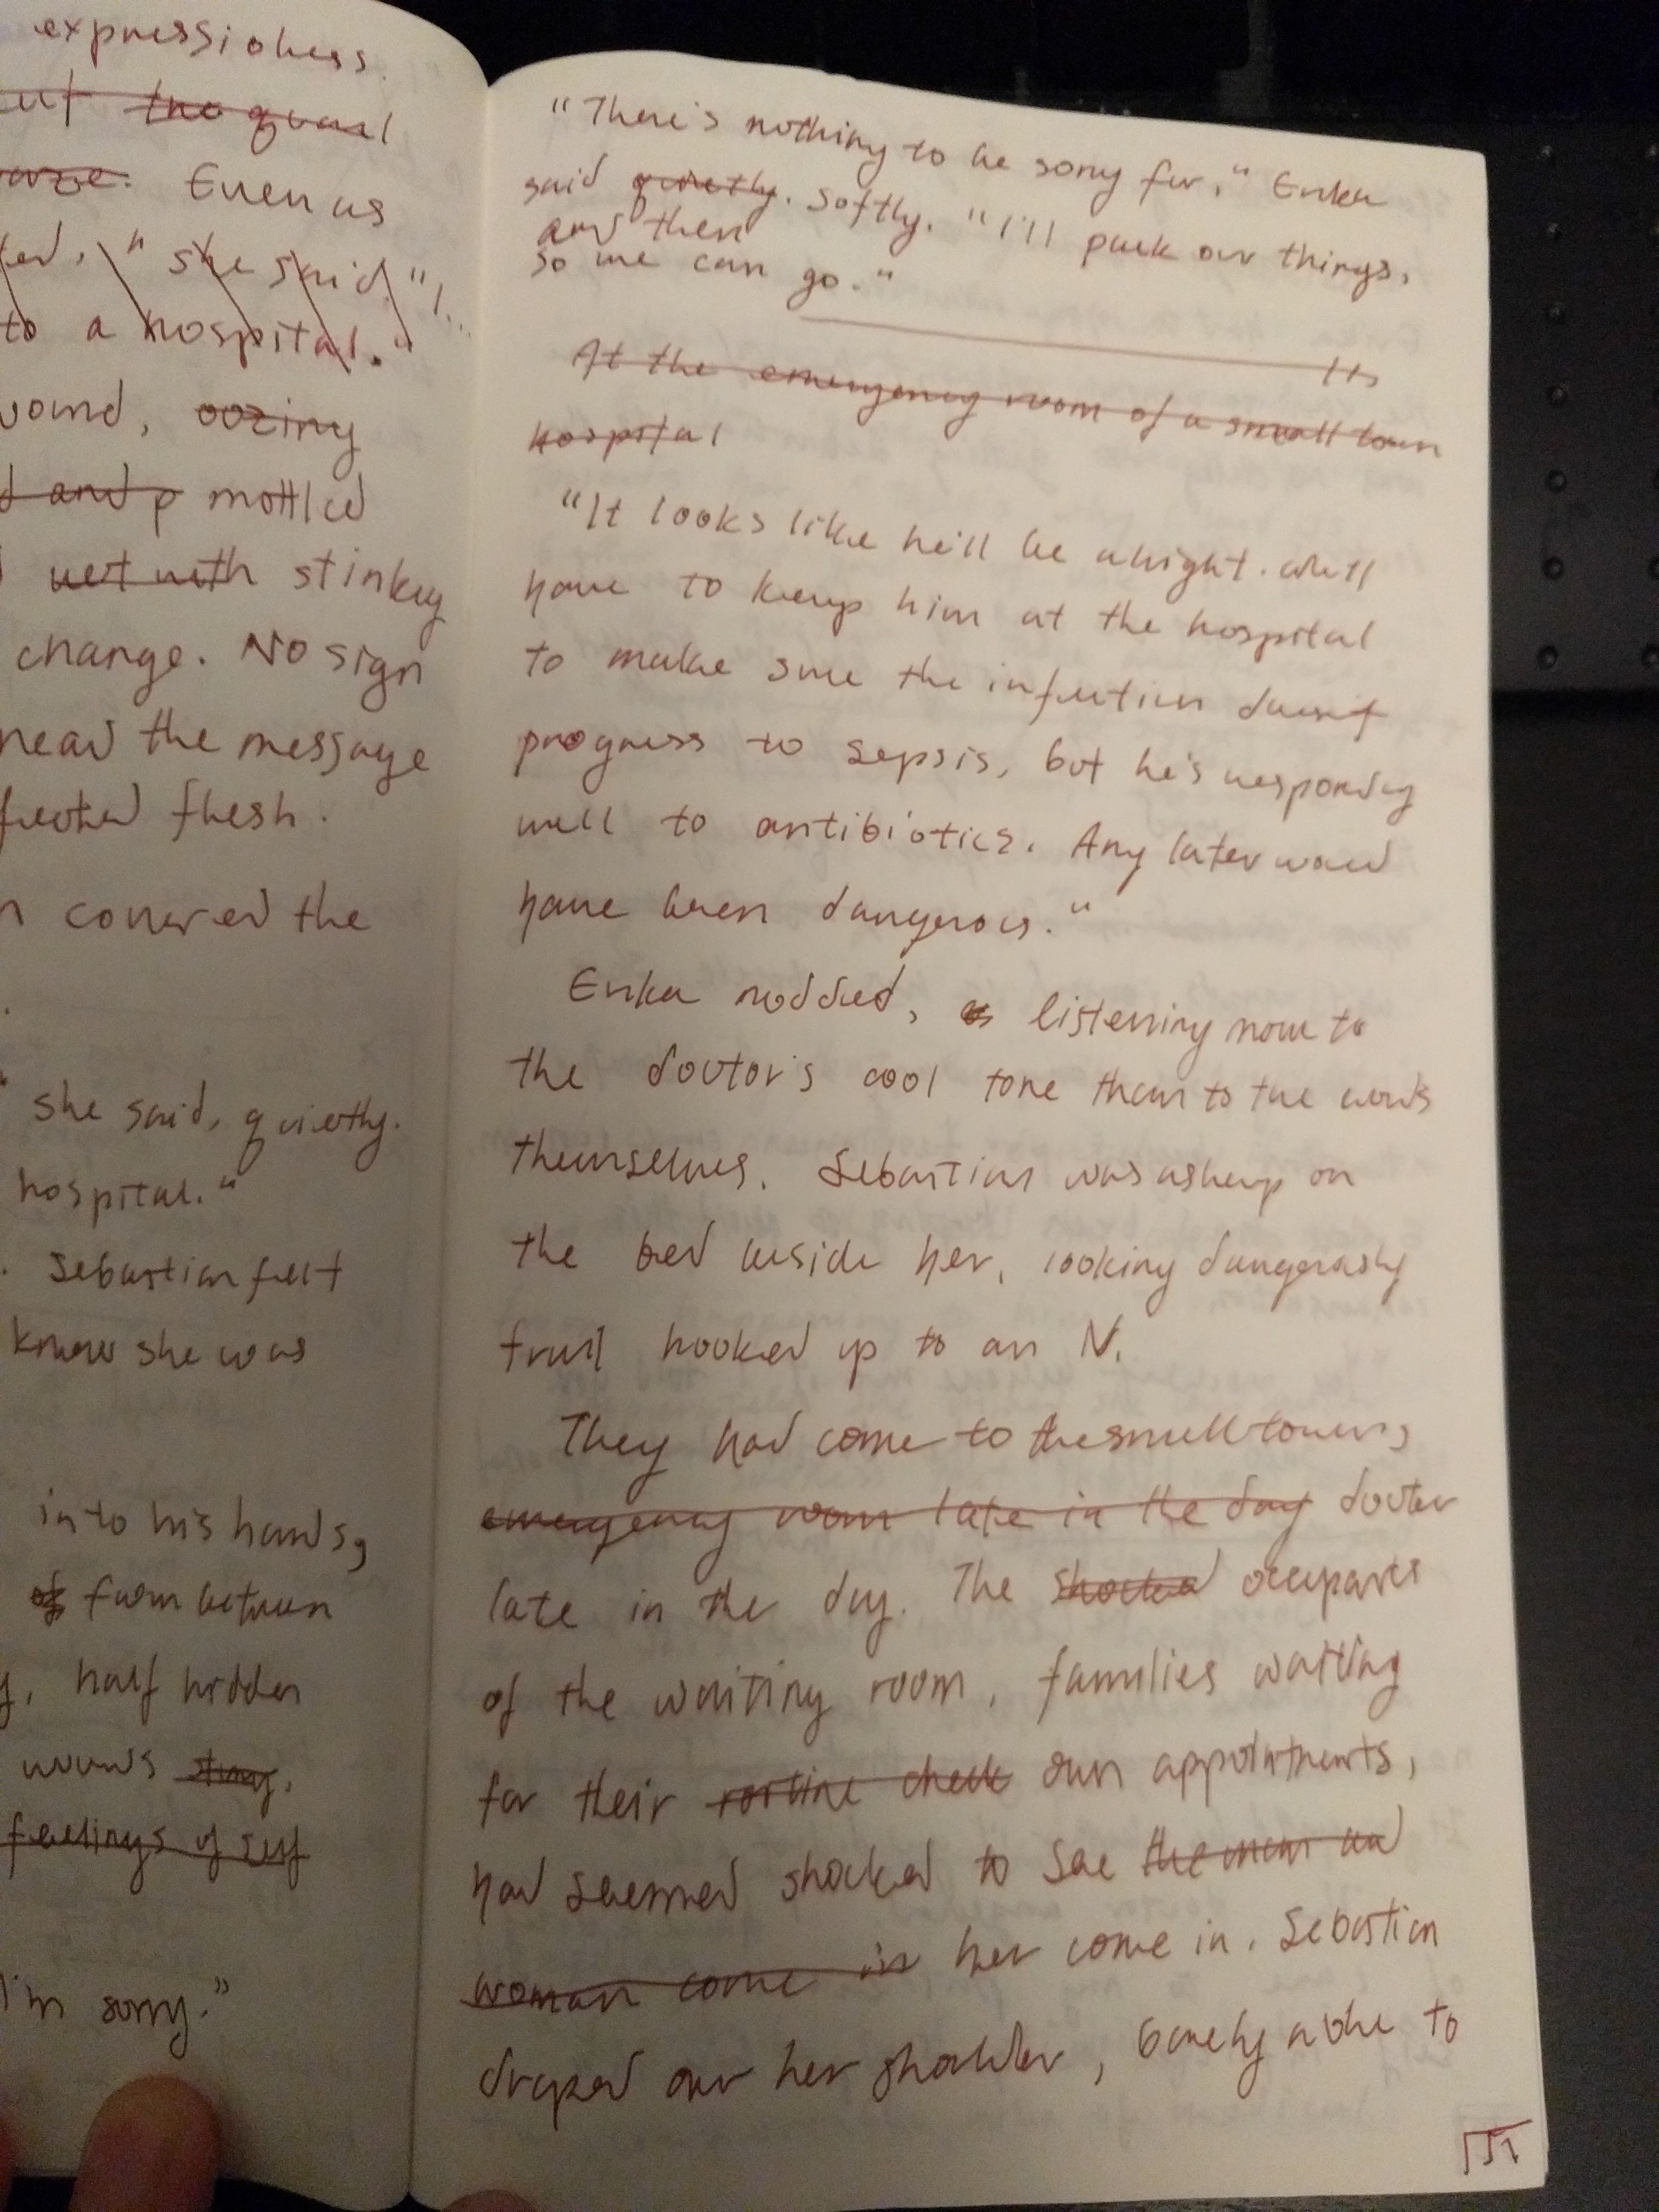 expressionless.
the qual
Even as
she said, "I...
to a hospital."
wound, oozing
and p mottled
wet with stinky
change. No sign
near the message
flesh.
covered the
she said, quietly.
hospital."
Sebastian felt
knew she was
into his hands,
of form between
half hidden
words
feelings of self
I'm sorry."
"There's nothing to be sorry for," Erika
said quietly. softly. "I'll pack our things,
and then
so we can go."
At the emergency room of a small town
hospital
"It looks like he'll be alright. We'll
have to keep him at the hospital
to make sure the infection doesn't
progress to sepsis, but he's responding
well to antibiotics. Any later would
have been dangerous."
Erika nodded, listening more to
the doctor's cool tone than to the words
themselves. Sebastian was asleep on
the bed beside her, looking dangerously
frail hooked up to an IV.
They had come to the small town's
emergency room late in the day doctor
late in the day. The shocked occupants
of the waiting room, families waiting
for their routine check own appointments,
had seemed shocked to see the man and
woman come in her come in. Sebastian
draped over her shoulder, barely able to